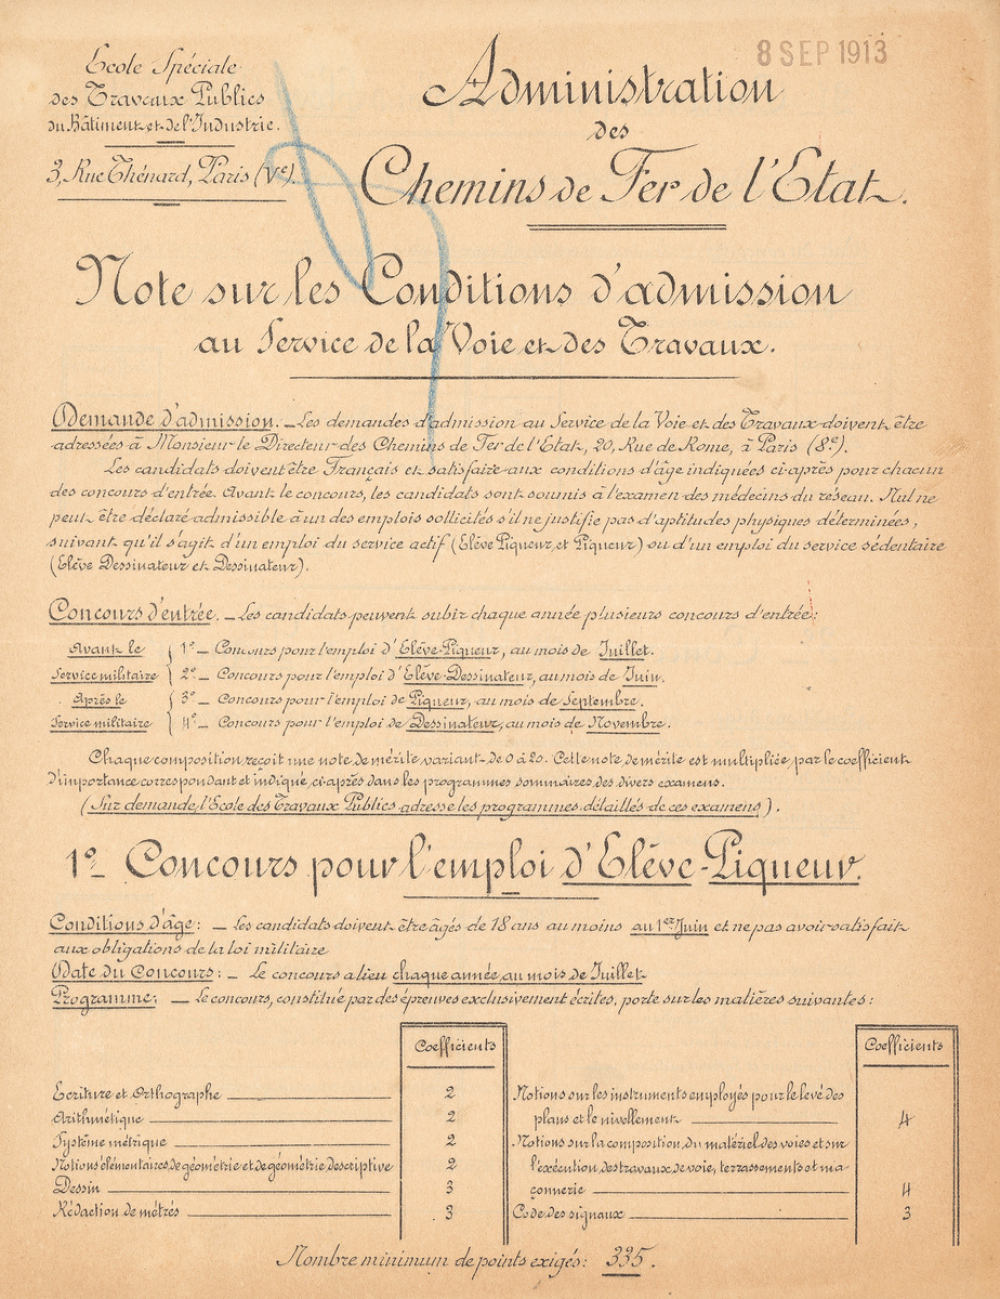 8 SEP 1913
Ecole Spéciale
des Travaux Publics
du Bâtiment et de l'Industrie.
3, Rue Thénard, Paris (Ve).
Administration
des
Chemins de Fer de l'Etat.
Note sur les Conditions d'admission
au Service de la Voie et des Travaux.
Demande d'admission. — Les demandes d'admission au Service de la Voie et des Travaux doivent être
adressées à Monsieur le Directeur des Chemins de Fer de l'Etat, 20, Rue de Rome, à Paris (8e).
Les candidats doivent être Français et satisfaire aux conditions d'âge indiquées ci-après pour chacun
des concours d'entrée. Avant le concours, les candidats sont soumis à l'examen des médecins du réseau. Nul ne
peut être déclaré admissible à un des emplois sollicités s'il ne justifie pas d'aptitudes physiques déterminées,
suivant qu'il s'agit d'un emploi du service actif (Elève Piqueur et Piqueur) ou d'un emploi du service sédentaire
(Elève Dessinateur et Dessinateur).
Concours d'entrée. — Les candidats peuvent subir chaque année plusieurs concours d'entrée:
Avant le { 1º — Concours pour l'emploi d'Elève-Piqueur, au mois de Juillet.
Service militaire { 2º — Concours pour l'emploi d'Elève-Dessinateur, au mois de Juin.
Après le { 3º — Concours pour l'emploi de Piqueur, au mois de Septembre.
Service militaire { 4º — Concours pour l'emploi de Dessinateur, au mois de Novembre.
Chaque composition reçoit une note de mérite variant de 0 à 20. Cette note de mérite est multipliée par le coefficient
d'importance correspondant et indiqué ci-après dans les programmes sommaires des divers examens.
(Sur demande, l'Ecole des Travaux Publics adresse les programmes détaillés de ces examens).
1º — Concours pour l'emploi d'Elève-Piqueur.
Conditions d'âge: — Les candidats doivent être âgés de 18 ans au moins au 1er Juin et ne pas avoir satisfait
aux obligations de la loi militaire
Date du Concours: — Le concours a lieu chaque année au mois de Juillet
Programme: — Le concours, constitué par des épreuves exclusivement écrites, porte sur les matières suivantes:
Coefficients
Ecriture et Orthographe 2
Arithmétique 2
Système métrique 2
Notions élémentaires de géométrie et de géométrie descriptive 2
Dessin 3
Rédaction de métrés 3
Coefficients
Notions sur les instruments employés pour le levé des
plans et le nivellement 4
Notions sur la composition du matériel des voies et sur
l'exécution des travaux de voie, terrassements et ma-
çonnerie 4
Code des signaux 3
Nombre minimum de points exigés: 335.